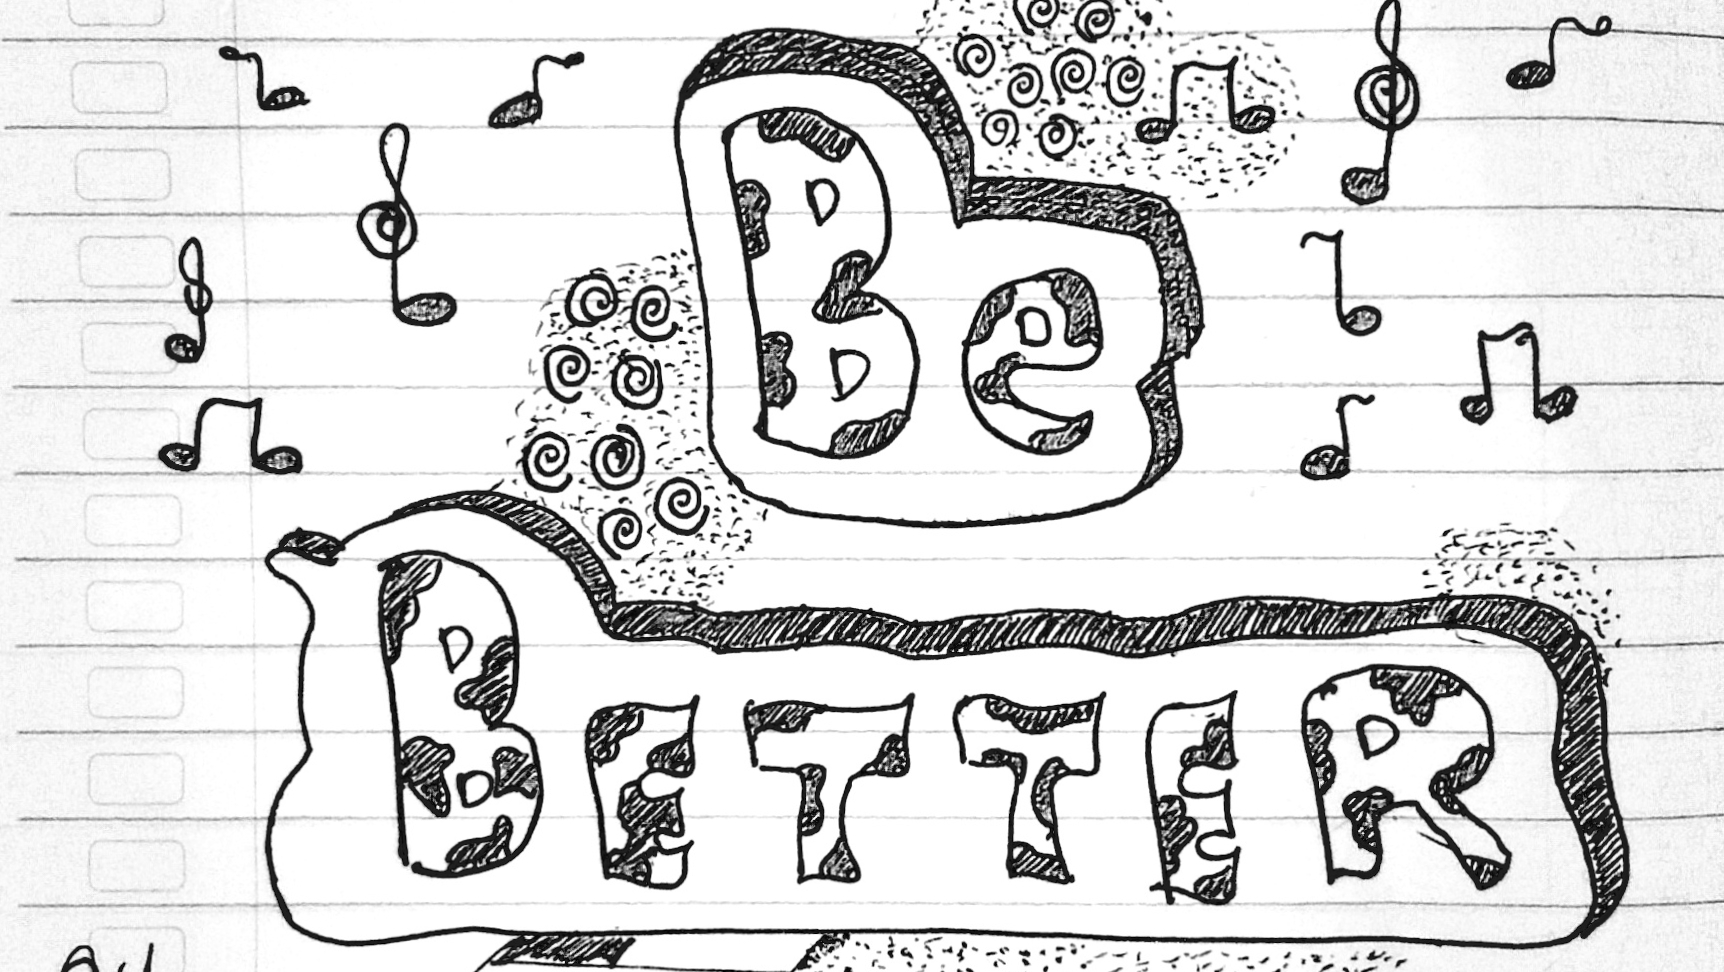 Be
BETTER